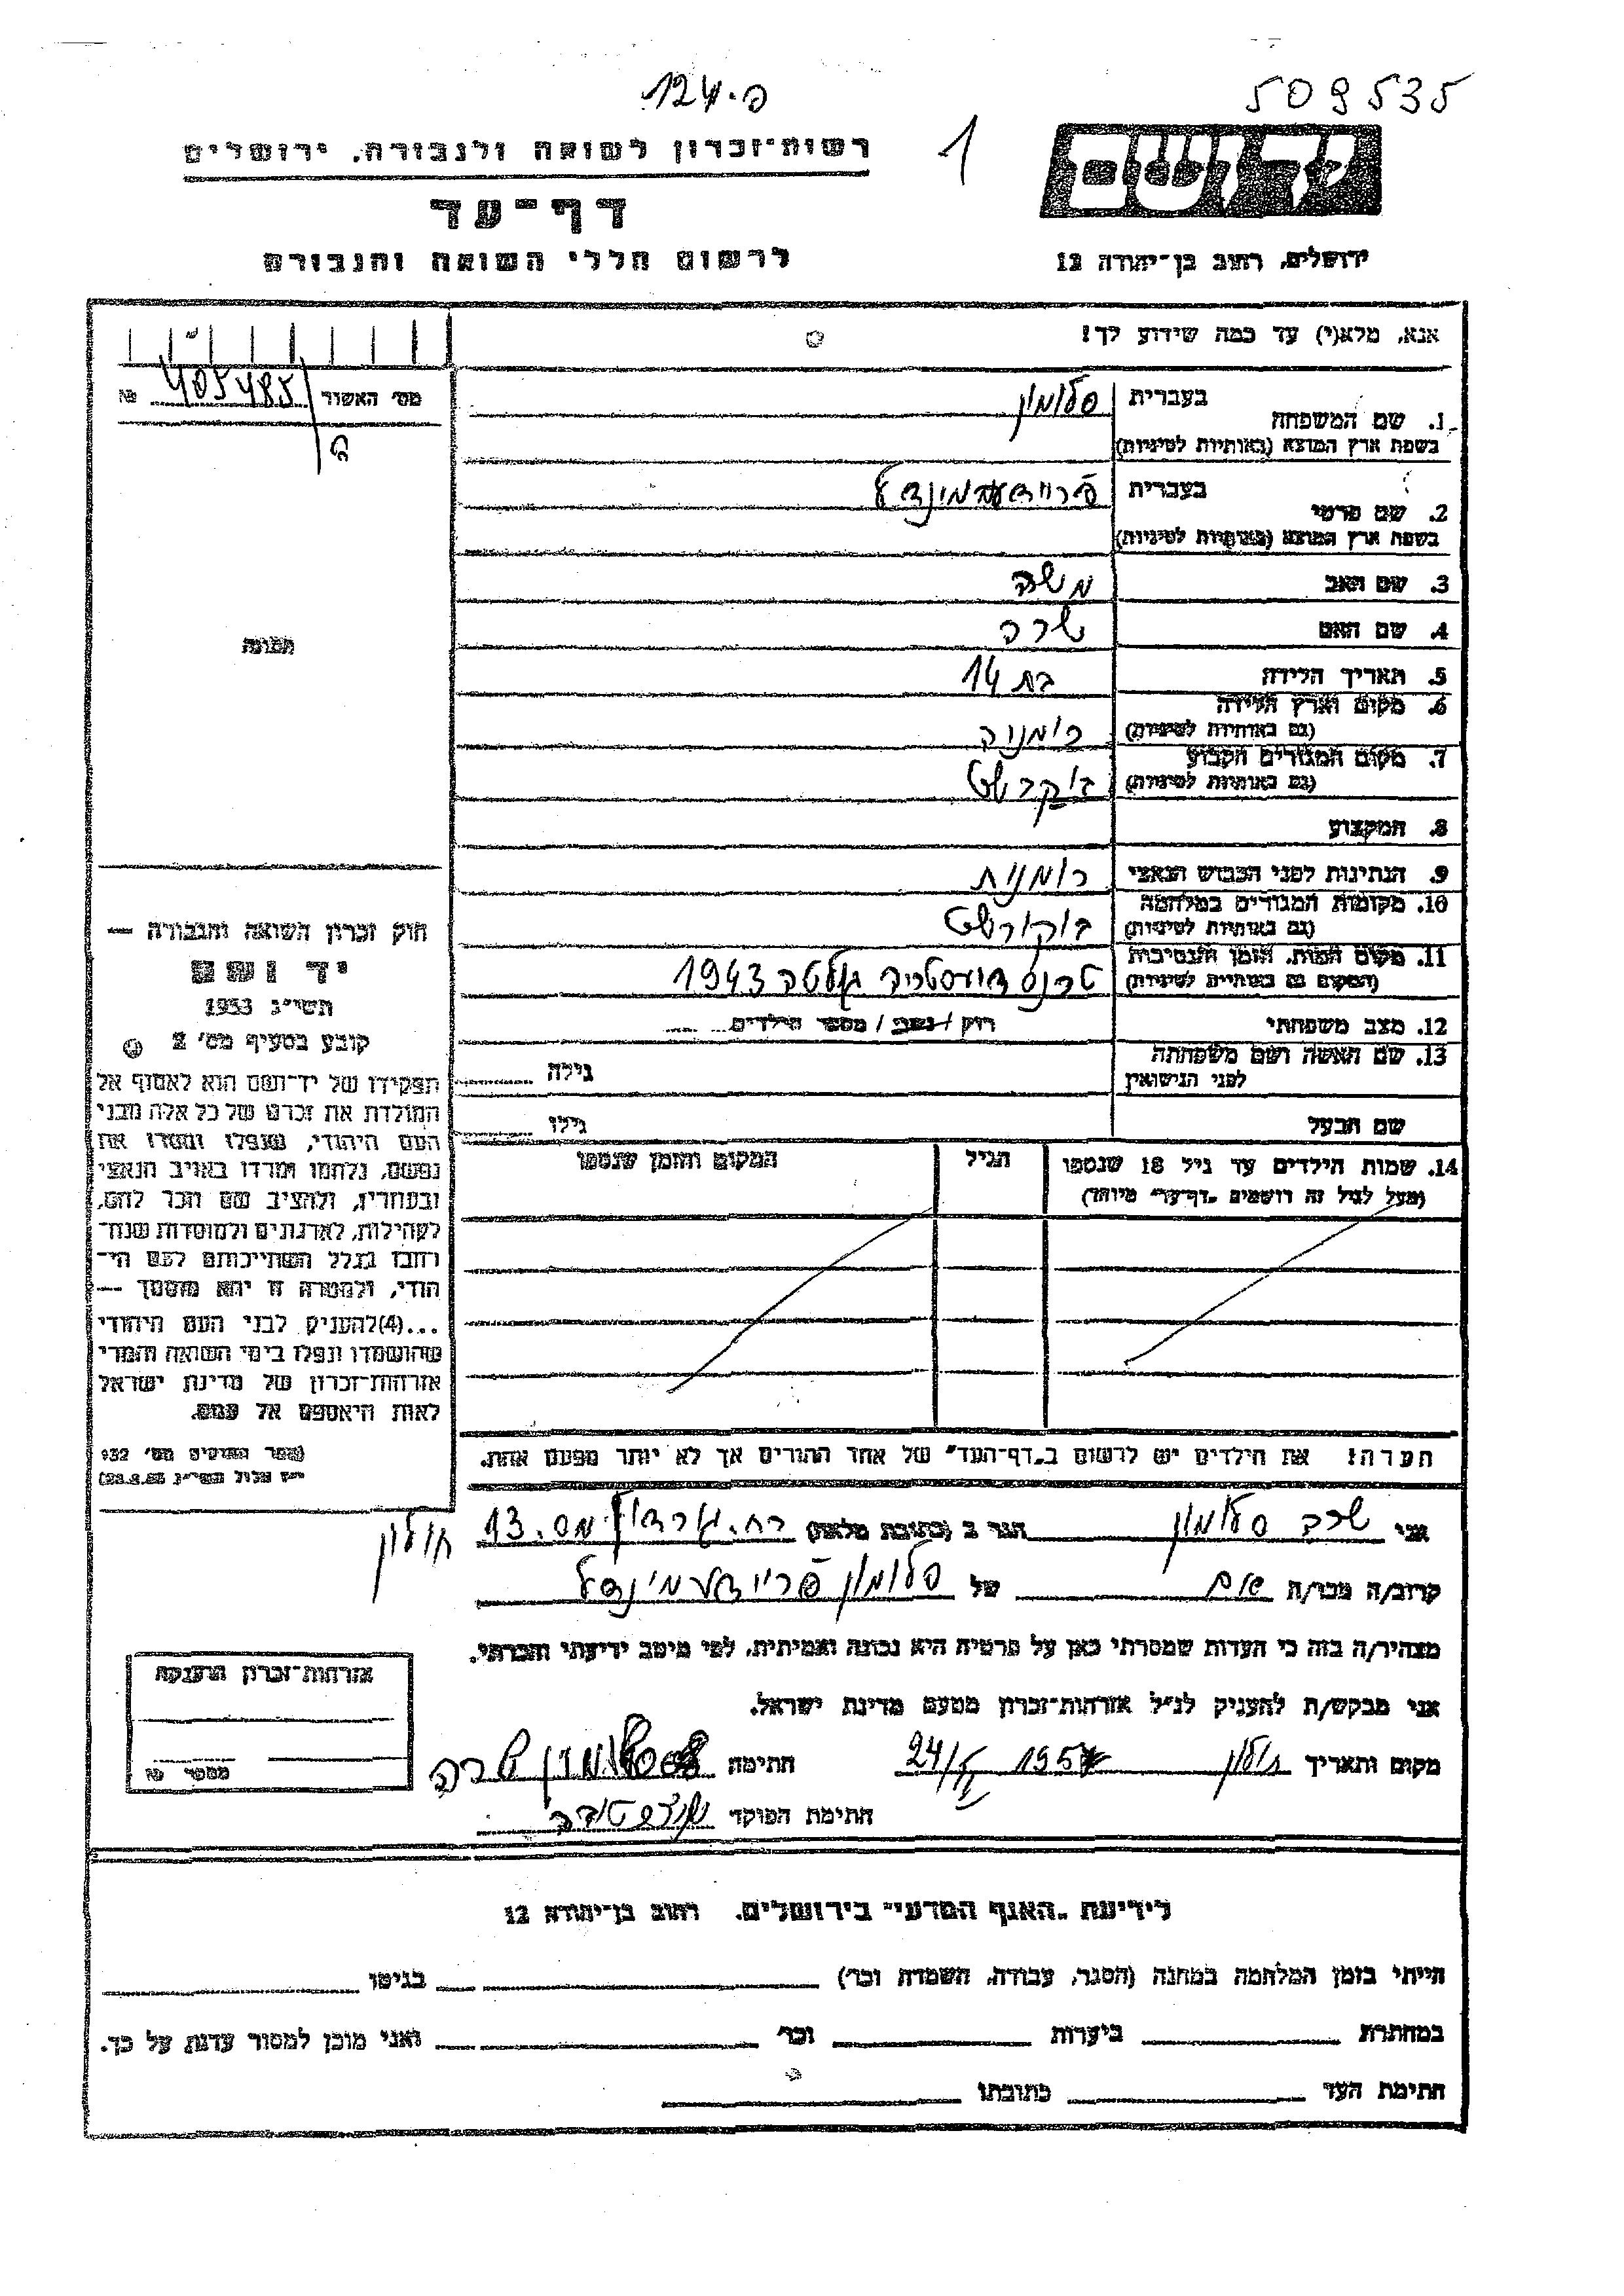 509535
124.פ
1
יד ושם
רשות־זכרון לשואה ולגבורה, ירושלים
דף־עד
לרשום חללי השואה והגבורה
ירושלים, רחוב בן־יהודה 12
אנא, מלא(י) עד כמה שידוע לך!
מס׳ האשור 405485 №
1. שם המשפחה
בעברית סלומון
בשפת ארץ המוצא (באותיות לטיניות)
2. שם פרטי
בעברית פריידע מינדל
בשפת ארץ המוצא (באותיות לטיניות)
3. שם האב משה
4. שם האם שרה
5. תאריך הלידה בת 14
6. מקום וארץ הלידה
(גם באותיות לטיניות) רומניה
7. מקום המגורים הקבוע
(גם באותיות לטיניות) בוקרשט
8. המקצוע
9. הנתינות לפני הכבוש הנאצי רומנית
10. מקומות המגורים במלחמה
(גם באותיות לטיניות) בוקורשט
11. מקום המות, הזמן והנסיבות
(המקום גם באותיות לטיניות) טרנסדניסטריה גולטה 1943
12. מצב משפחתי רוק / נשוי / מספר הילדים
13. שם האשה ושם משפחתה
לפני הנישואין גילה
שם הבעל גילו
14. שמות הילדים עד גיל 18 שנספו הגיל המקום והזמן שנספו
(מעל לגיל זה רושמים „דף־עד״ מיוחד)
הערה! את הילדים יש לרשום ב„דף־העד״ של אחד ההורים אך לא יותר מפעם אחת.
תמונה
חוק זכרון השואה והגבורה —
יד ושם
תשי״ג 1953
קובע בסעיף מס׳ 2
תפקידו של יד־ושם הוא לאסוף אל
המולדת את זכרם של כל אלה מבני
העם היהודי, שנפלו ומסרו את
נפשם, נלחמו ומרדו באויב הנאצי
ובעוזריו, ולהציב שם וזכר להם,
לקהילות, לארגונים ולמוסדות שנח־
רבו בגלל השתייכותם לעם הי־
הודי, ולמטרה זו יהא מוסמך —
...(4) להעניק לבני העם היהודי
שהושמדו ונפלו בימי השואה והמרי
אזרחות־זכרון של מדינת ישראל
לאות היאספם אל עמם.
(ספר החוקים מס׳ 132
י״ז אלול תשי״ג 28.8.53)
אני שרה סלומון הגר ב (כתובת מלאה) רח. גורדון מס. 13 חולון
קרוב/ה מכר/ה אם של סלומון פריידע מינדל
מצהיר/ה בזה כי העדות שמסרתי כאן על פרטיה היא נכונה ואמיתית, לפי מיטב ידיעתי והכרתי.
אני מבקש/ת להעניק לנ״ל אזרחות־זכרון מטעם מדינת ישראל.
מקום ותאריך חולון 24/ חתימה סלומון שרה
חתימת הפוקד
אזרחות־זכרון הוענקה
מספר №
לידיעת „האגף המדעי״ בירושלים, רחוב בן־יהודה 12
הייתי בזמן המלחמה במחנה (הסגר, עבודה, השמדה וכר׳) בגיטו
במחתרת ביערות וכר׳ ואני מוכן למסור עדות על כך.
חתימת העד כתובתו